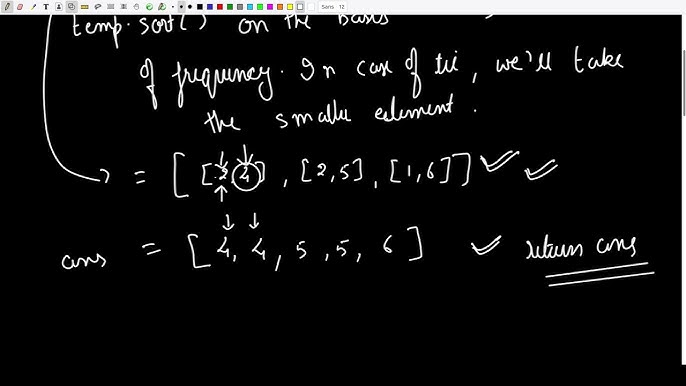 Sans 12
temp.sort() on the basis
of frequency. In case of tie, we'll take
the smaller element.
= [[2,4], [2,5], [1,6]]
ans = [4, 4, 5, 5, 6] return ans